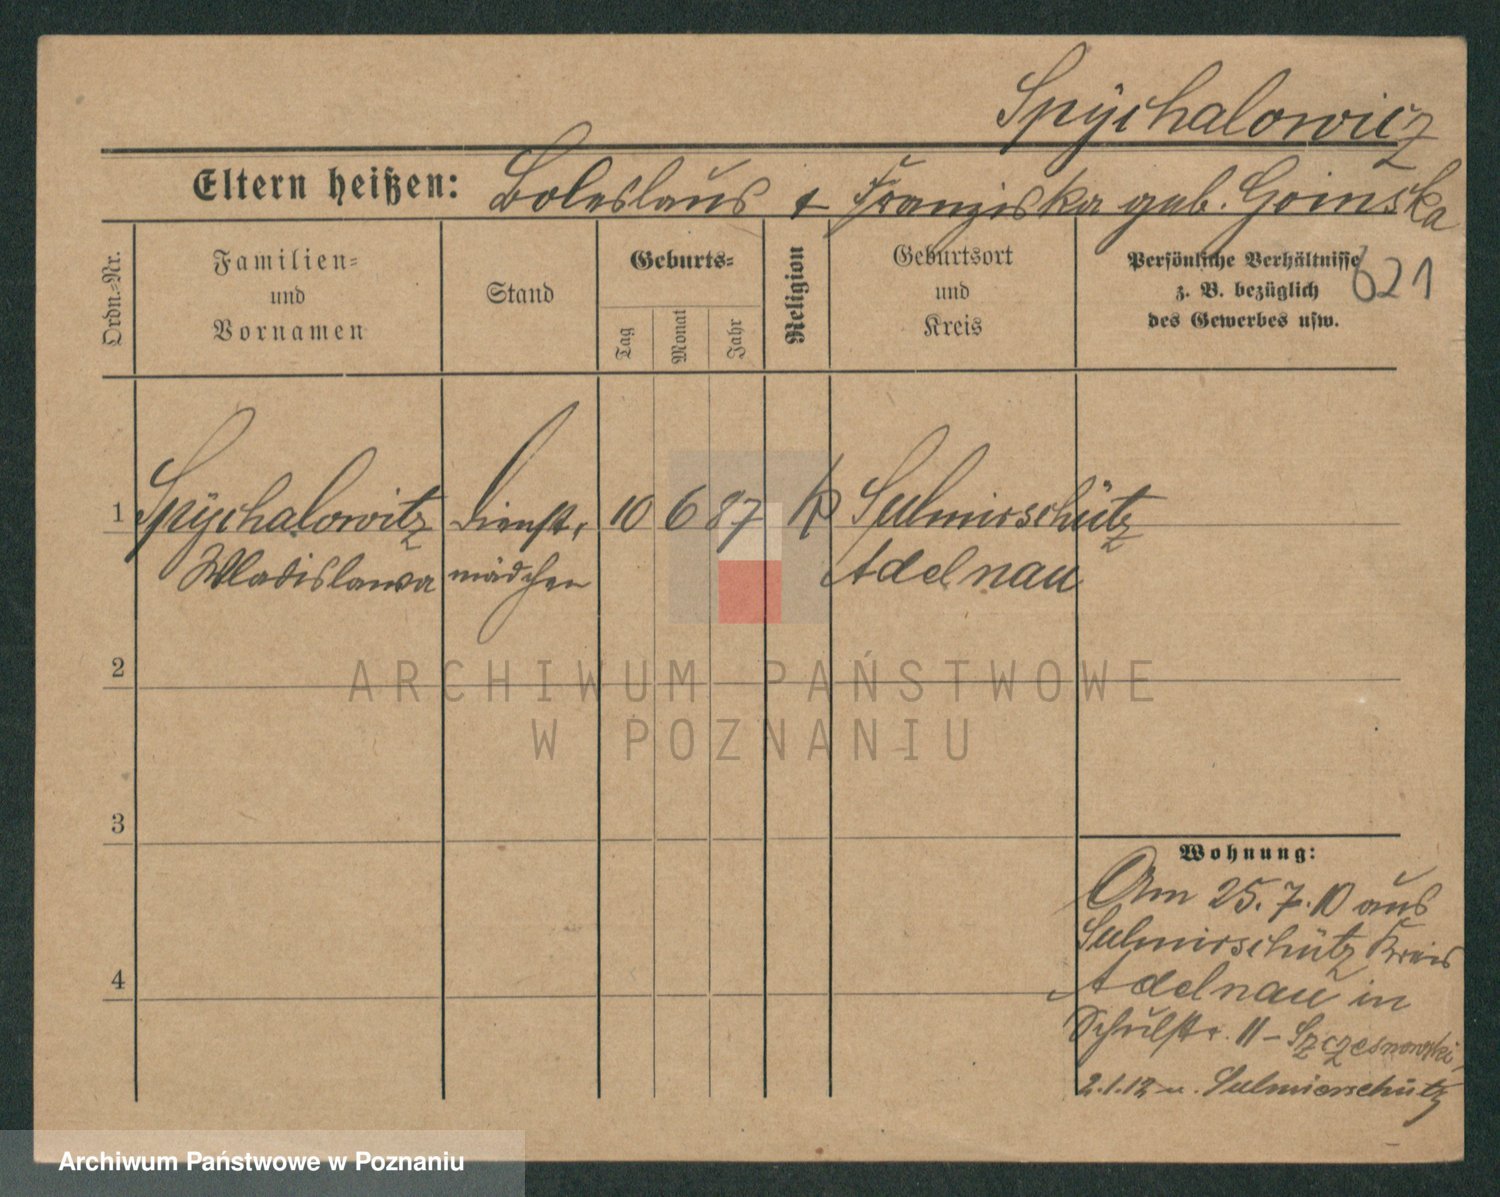 Spÿchalowicz
Eltern heißen: Boleslaus + Franziska geb. Goinska
Ordn.-Nr.
Familien-
und
Vornamen
Stand
Geburts-
Tag
Monat
Jahr
Religion
Geburtsort
und
Kreis
Persönliche Verhältnisse
z. B. bezüglich
des Gewerbes usw.
621
1 Spÿchalowitz Dienst- 10 6 87 K Sulmirschütz
Wladislawa mädchen Adelnau
2
ARCHIWUM PAŃSTWOWE
W POZNANIU
3
Wohnung:
Am 25.7.10 aus
Sulmirschütz Kreis
Adelnau in
4
Schulstr. 11 - Szczesnowski,
2.1.12 n. Sulmierschütz
Archiwum Państwowe w Poznaniu